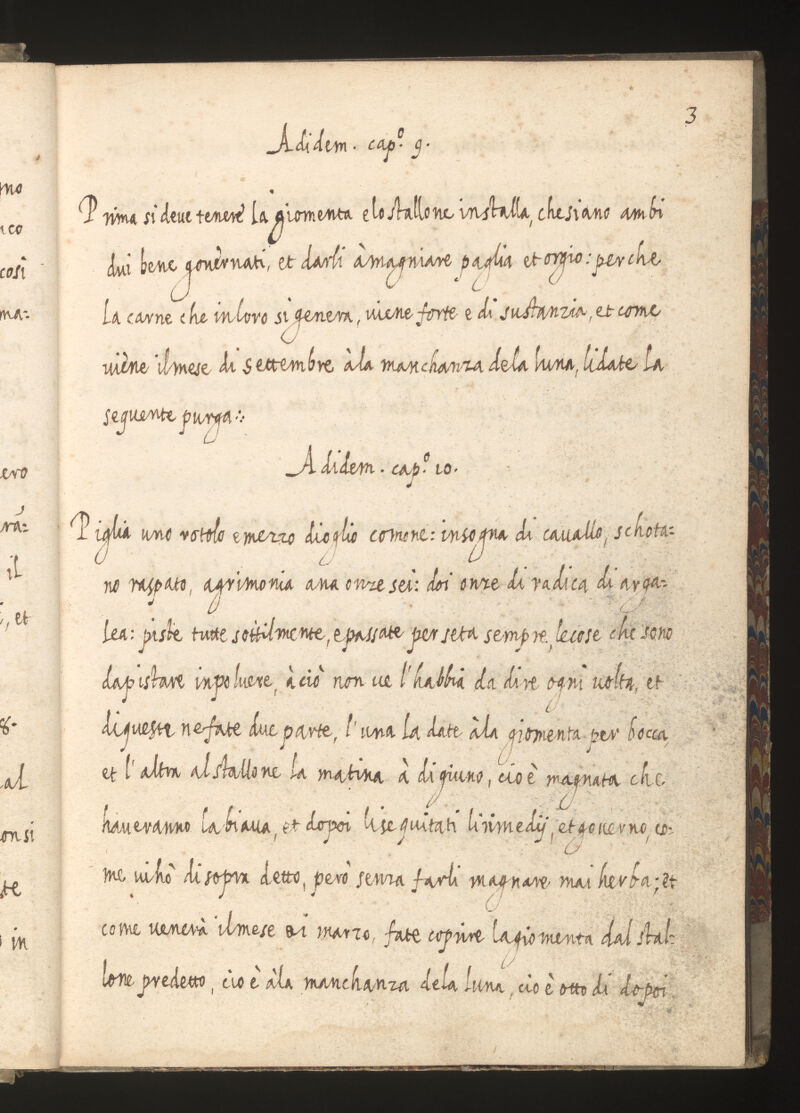 no
co
così
ma:
ero
rã:
il
, et
8.
al
onsi
te
in
3
Adidem. cap.º 9.
Prima si deue tenere la giomenta e lo stallone in stalla, che siano ambi
dui bene gouernati, et darli à magniare paglia et orgio: perche
la carne che in loro si genera, uiene forte e di sustanzia, et come
uiene il mese di settembre àla manchanza de la luna, li date la
seguente purga ∴
Adidem. cap.º 10.
Piglia uno rotolo e mezzo di oglio comone: insogna di cauallo, schota:
no raspato, agrimonia ana onze sei: doi onze di radica di arga:
lea: piste tutte sottilmente, e passate per seta sempre, le cose che sono
da pistare in poluere, à ciò non ue l'habbia da dire ogni uolta, et
di queste ne fate due parte, l'una la date àla giomenta per bocca
et l'altra al stallone la matina à digiuno, cio è magnata che
haueranno la biaua, et dopoi li sequitati li rimedij, et gouerno, co:
me ui hò di sopra detto, però senza farli magnare mai herba; et
come uenerà il mese di marzo, fate coprire la giomenta dal stal:
lone predetto, cio è àla manchanza de la luna, cio è otto di dopoi